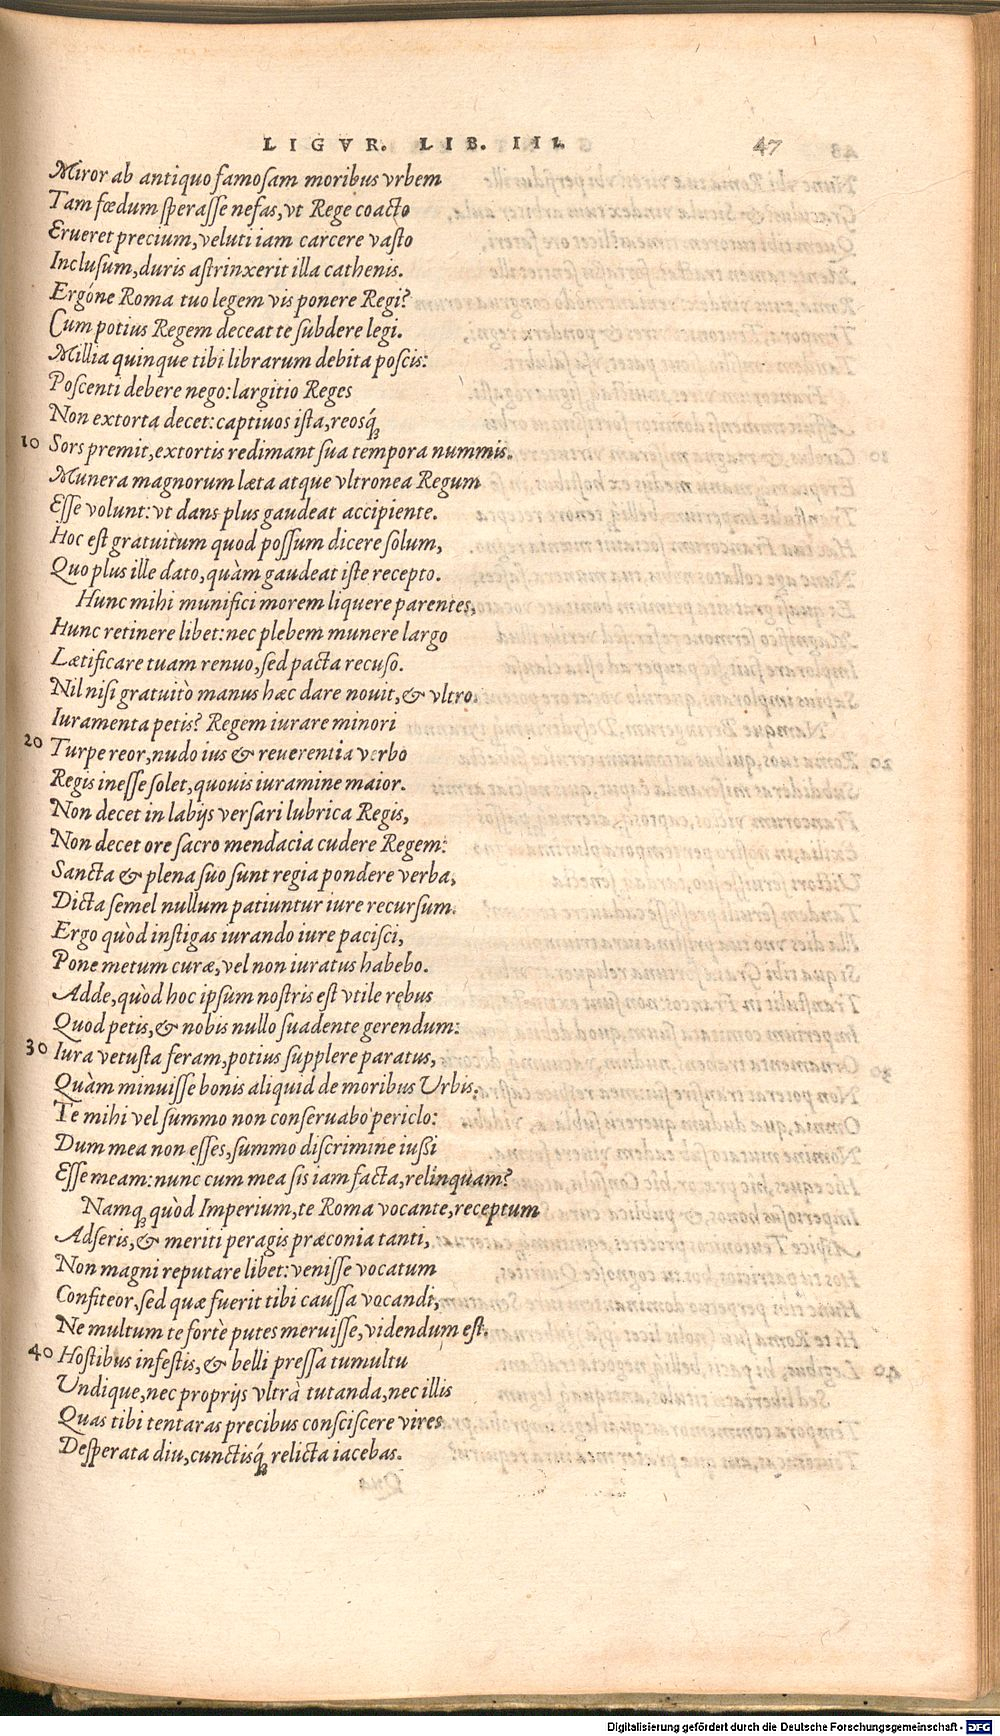 LIGVR. LIB. III. 47
Miror ab antiquo famosam moribus vrbem
Tam fœdum sperasse nefas, vt Rege coacto
Erueret precium, veluti iam carcere vasto
Inclusum, duris astrinxerit illa cathenis.
Ergóne Roma tuo legem vis ponere Regi?
Cum potius Regem deceat te subdere legi.
Millia quinque tibi librarum debita poscis:
Poscenti debere nego: largitio Reges
Non extorta decet: captiuos ista, reosq́;
10 Sors premit, extortis redimant sua tempora nummis.
Munera magnorum læta atque vltronea Regum
Esse volunt: vt dans plus gaudeat accipiente.
Hoc est gratuitum quod possum dicere solum,
Quo plus ille dato, quàm gaudeat iste recepto.
Hunc mihi munifici morem liquere parentes,
Hunc retinere libet: nec plebem munere largo
Lætificare tuam renuo, sed pacta recuso.
Nil nisi gratuitò manus hæc dare nouit, & vltro.
Iuramenta petis? Regem iurare minori
20 Turpe reor, nudo ius & reuerentia verbo
Regis inesse solet, quouis iuramine maior.
Non decet in labijs versari lubrica Regis,
Non decet ore sacro mendacia cudere Regem:
Sancta & plena suo sunt regia pondere verba,
Dicta semel nullum patiuntur iure recursum.
Ergo quòd instigas iurando iure pacisci,
Pone metum curæ, vel non iuratus habebo.
Adde, quòd hoc ipsum nostris est vtile rebus
Quod petis, & nobis nullo suadente gerendum:
30 Iura vetusta feram, potius supplere paratus,
Quàm minuisse bonis aliquid de moribus Urbis.
Te mihi vel summo non conseruabo periclo:
Dum mea non esses, summo discrimine iussi
Esse meam: nunc cum mea sis iam facta, relinquam?
Namq; quòd Imperium, te Roma vocante, receptum
Adseris, & meriti peragis præconia tanti,
Non magni reputare libet: venisse vocatum
Confiteor, sed quæ fuerit tibi caussa vocandi,
Ne multum te fortè putes meruisse, videndum est.
40 Hostibus infestis, & belli pressa tumultu
Undique, nec proprijs vltrà tutanda, nec illis
Quas tibi tentaras precibus consciscere vires
Desperata diu, cunctisq́; relicta iacebas.
Digitalisierung gefördert durch die Deutsche Forschungsgemeinschaft - DFG